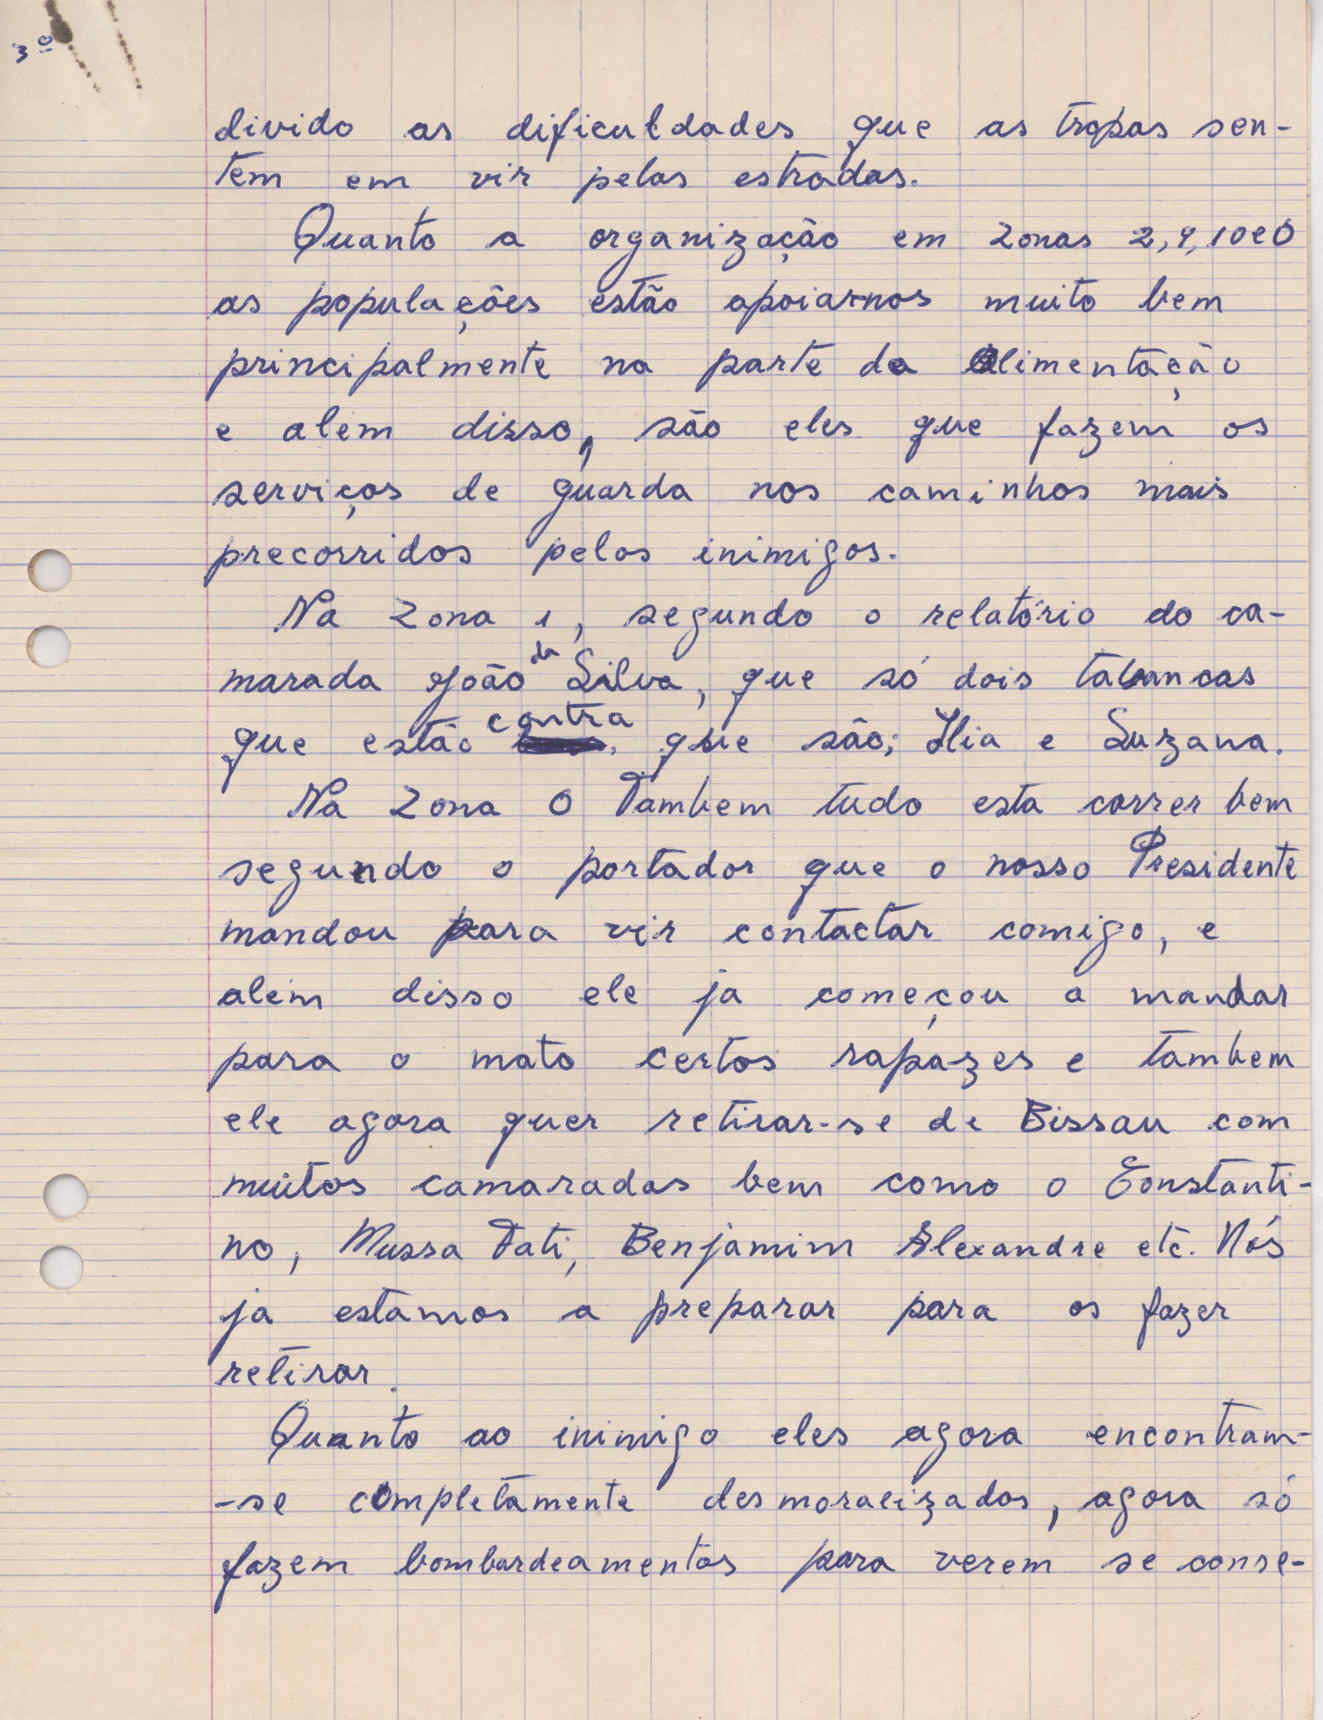 3º
divido as dificuldades que as tropas sen-
tem em vir pelas estradas.
Quanto a organização em zonas 2, 9, 10 e 0
as populações estão apoiar-nos muito bem
principalmente na parte da Alimentação
e alem disso, são eles que fazem os
serviços de guarda nos caminhos mais
precorridos pelos inimigos.
Na zona 1, segundo o relatório do ca-
marada João da Silva, que só dois tabancas
que estão contra, que são; Ilia e Suzana.
Na zona 0 Tambem tudo esta correr bem
segundo o portador que o nosso Presidente
mandou para vir contactar comigo, e
alem disso ele ja começou a mandar
para o mato certos rapazes e tambem
ele agora quer retirar-se de Bissau com
muitos camaradas bem como o Constanti-
no, Mussa Fati, Benjamim Alexandre etc. Nós
ja estamos a preparar para os fazer
retirar.
Quanto ao inimigo eles agora encontram-
-se completamente desmoralizados, agora só
fazem bombardeamentos para verem se conse-